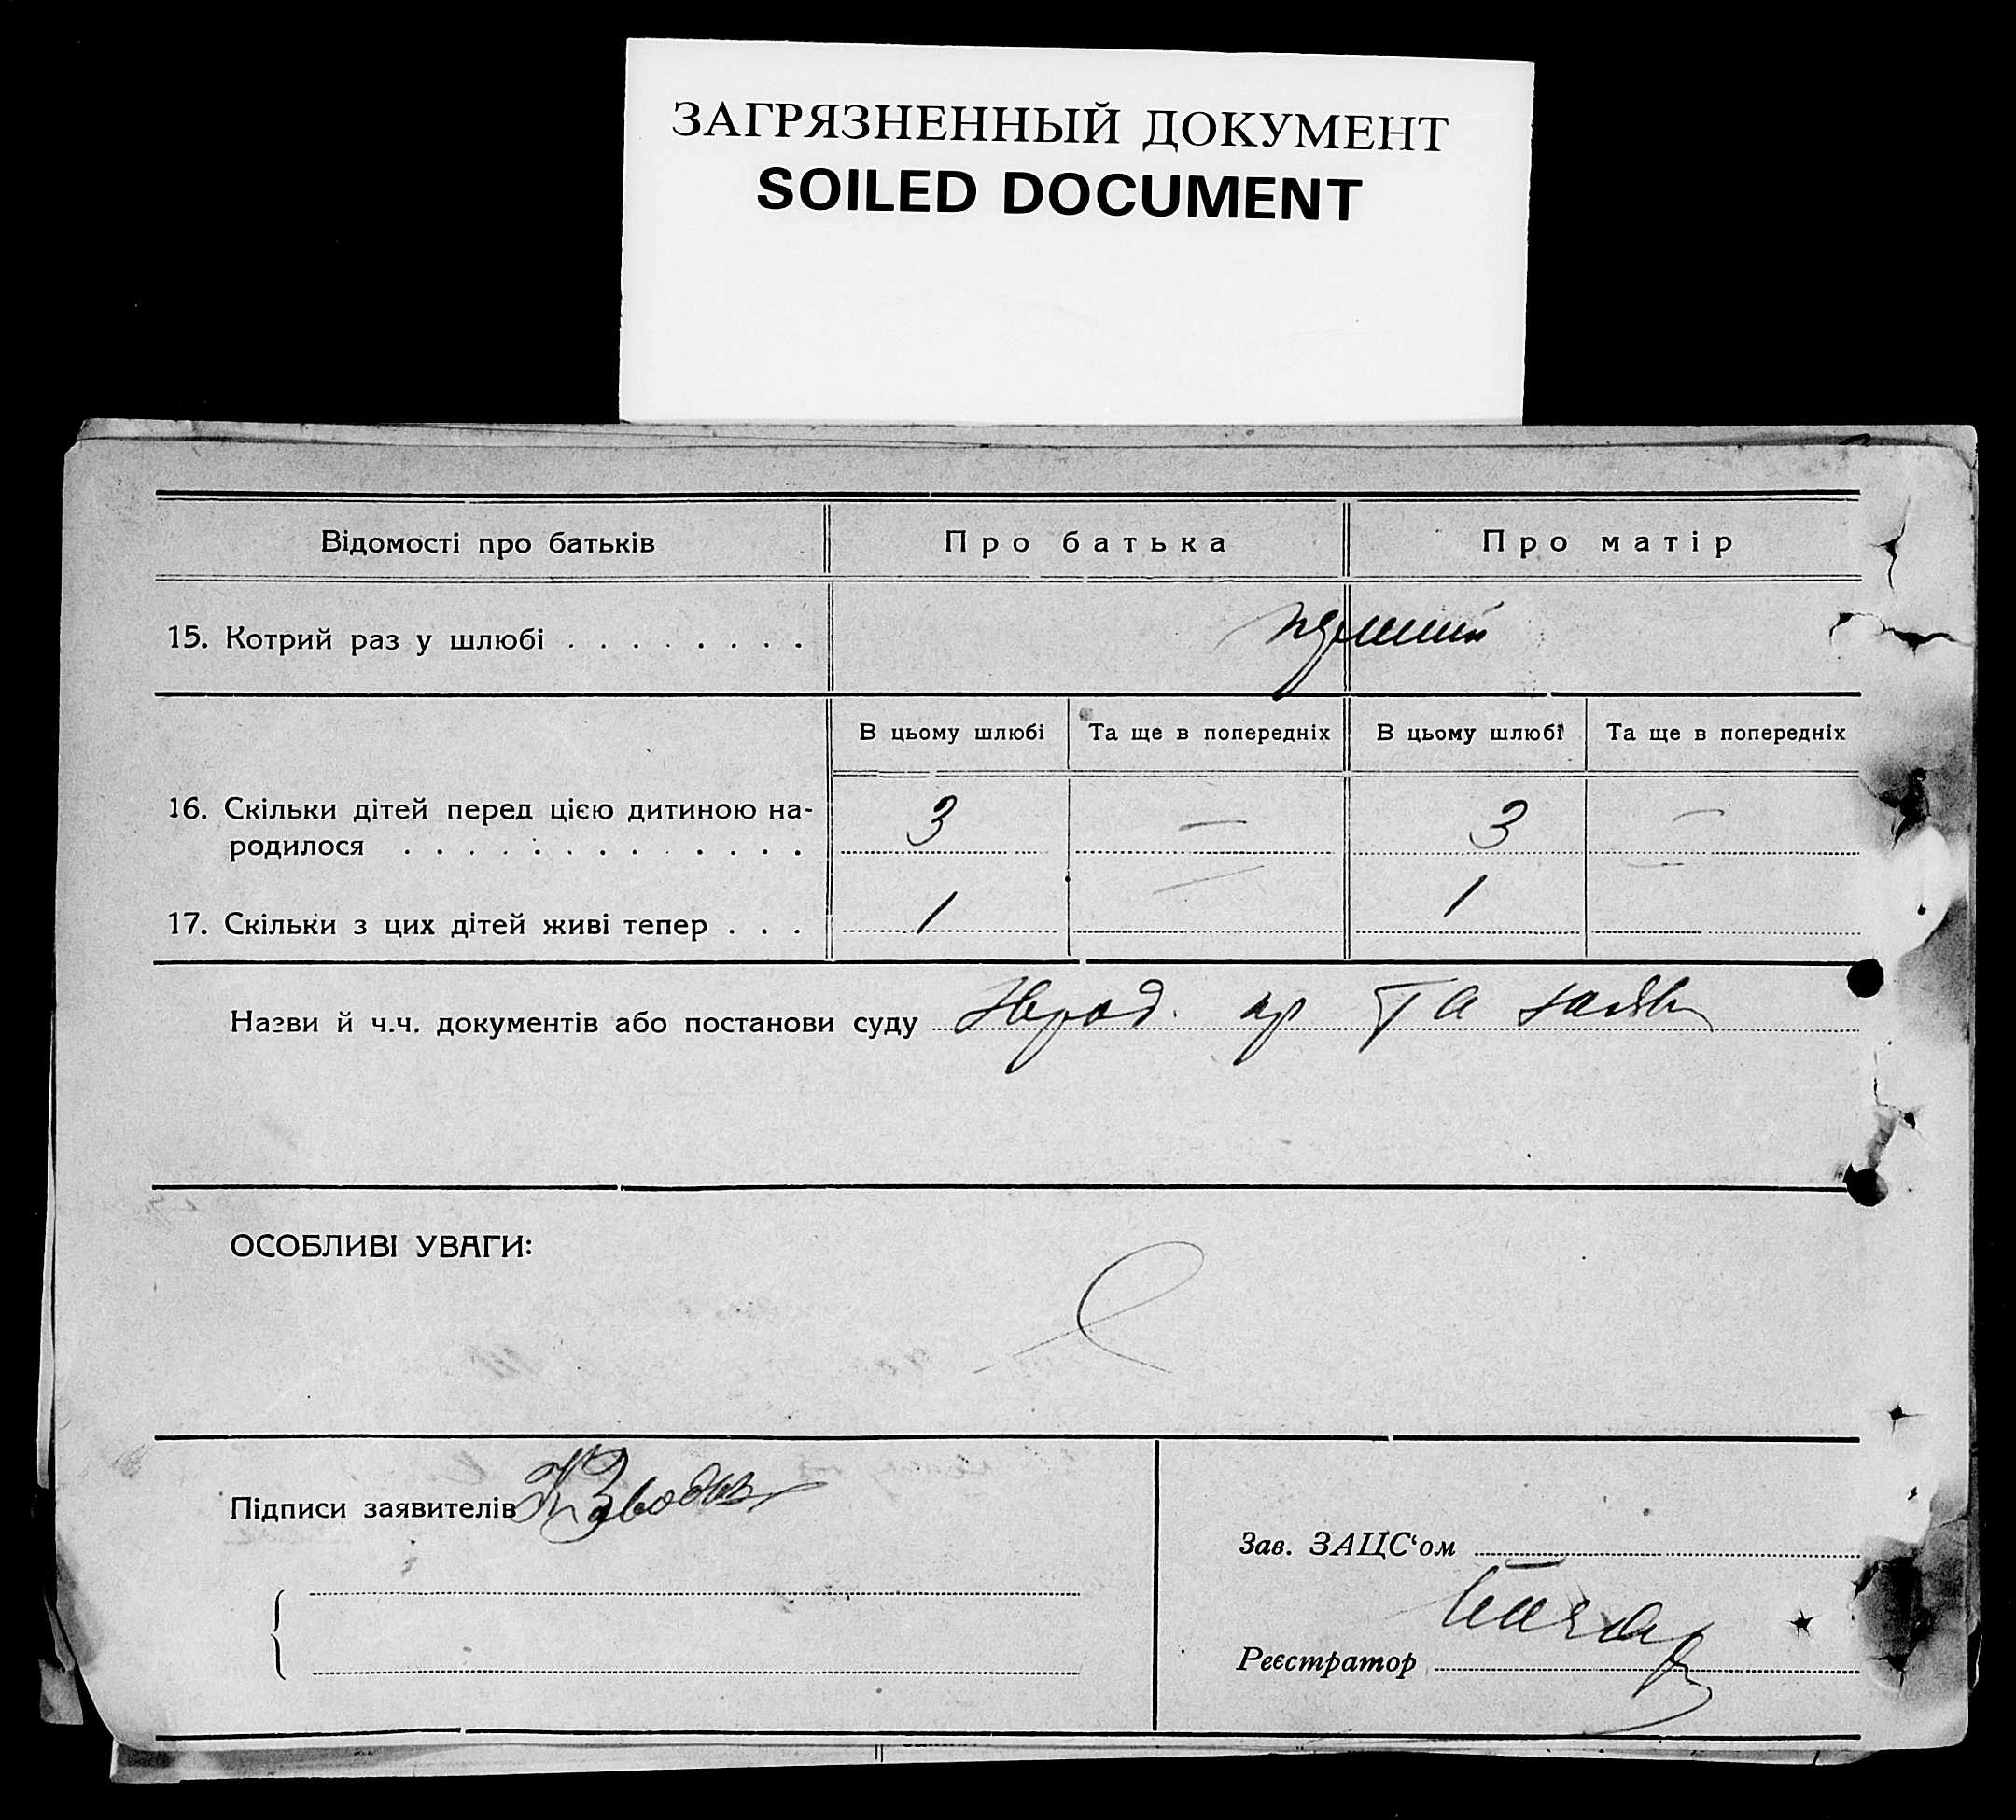 ЗАГРЯЗНЕННЫЙ ДОКУМЕНТ
SOILED DOCUMENT
Відомості про батьків Про батька Про матір
15. Котрий раз у шлюбі . . . . . . . .
В цьому шлюбі Та ще в попередніх В цьому шлюбі Та ще в попередніх
16. Скільки дітей перед цією дитиною на-
родилося . . . . . . . . . . . . . 3 — 3 —
17. Скільки з цих дітей живі тепер . . . 1 — 1 —
Назви й ч.ч. документів або постанови суду та
ОСОБЛИВІ УВАГИ:
Підписи заявителів
Зав. ЗАЦС‘ом
Реєстратор